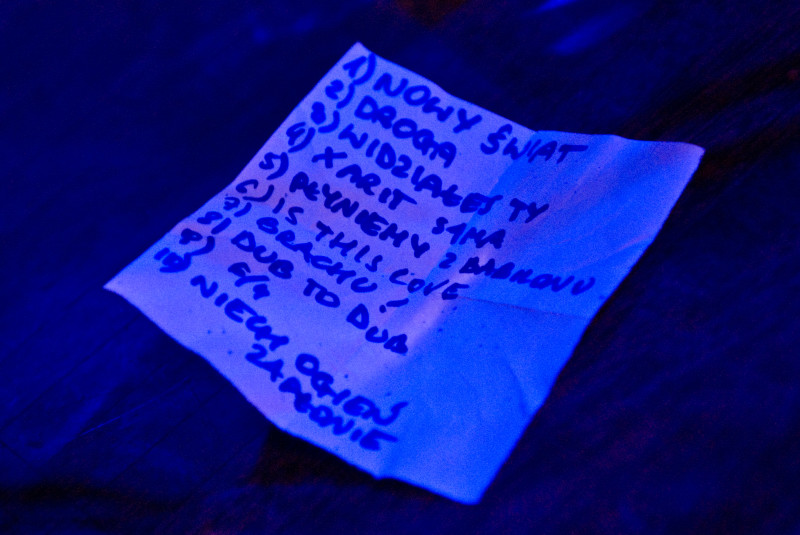 1) NOWY ŚWIAT
2) DROGA
3) WIDZIAŁEŚ TY
4) XARIT SAMA
5) PŁYNIEMY Z BARKOWU
6) IS THIS LOVE
7) BRACHU!
8) DUB TO DUB
9) 6/4
10) NIECH OGIEŃ
ZAPŁONIE